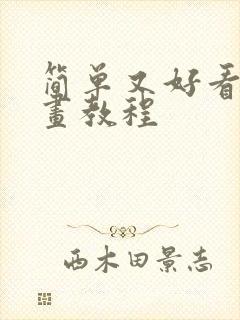 简单又好看
畫教程
西木田景志